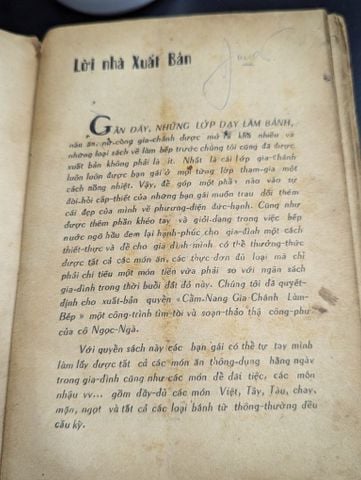 Lời nhà Xuất Bản
GẦN DÂY, NHỮNG LỚP DẠY LÀM BÁNH,
nấu ăn, nữ công gia-chánh được mở ra rất nhiều và
những loại sách về làm bếp trước chúng tôi cũng đã được
xuất bản không phải là ít. Nhất là cái lớp gia-Chánh
luôn luôn được bạn gái ở mọi từng lớp tham-gia một
cách nồng nhiệt. Vậy, để góp một phần vào sự
đòi-hỏi cấp-thiết của những bạn gái muốn trau dồi thêm
cái đẹp của mình về phương-diện đức-hạnh. Cũng như
được thêm phần khéo tay và giỏi-dắng trong việc bếp
nước ngõ hầu đem lại hạnh-phúc cho gia-đình một cách
thiết-thực và để cho gia đình mình có thể thưởng-thức
được tất cả các món ăn, các thực đơn đủ loại mà chỉ
phải chi tiêu một món tiền vừa phải so với ngân sách
gia-đình trong thời buổi đắt đỏ này. Chúng tôi đã quyết-
định cho xuất-bản quyển «Cẩm-Nang Gia Chánh Làm-
Bếp» một công-trình tìm-tòi và soạn-thảo thậ công-phu
của cô Ngọc-Ngà.
Với quyển sách này các bạn gái có thể tự tay mình
làm lấy được tất cả các món ăn thông-dụng hằng ngày
trong gia-đình cũng như các món để đãi tiệc, các món
nhậu vv... gồm đầy-đủ các món Việt, Tây, Tàu, chay,
mặn, ngọt và tất cả các loại bánh từ thông-thường đều
cầu kỳ.